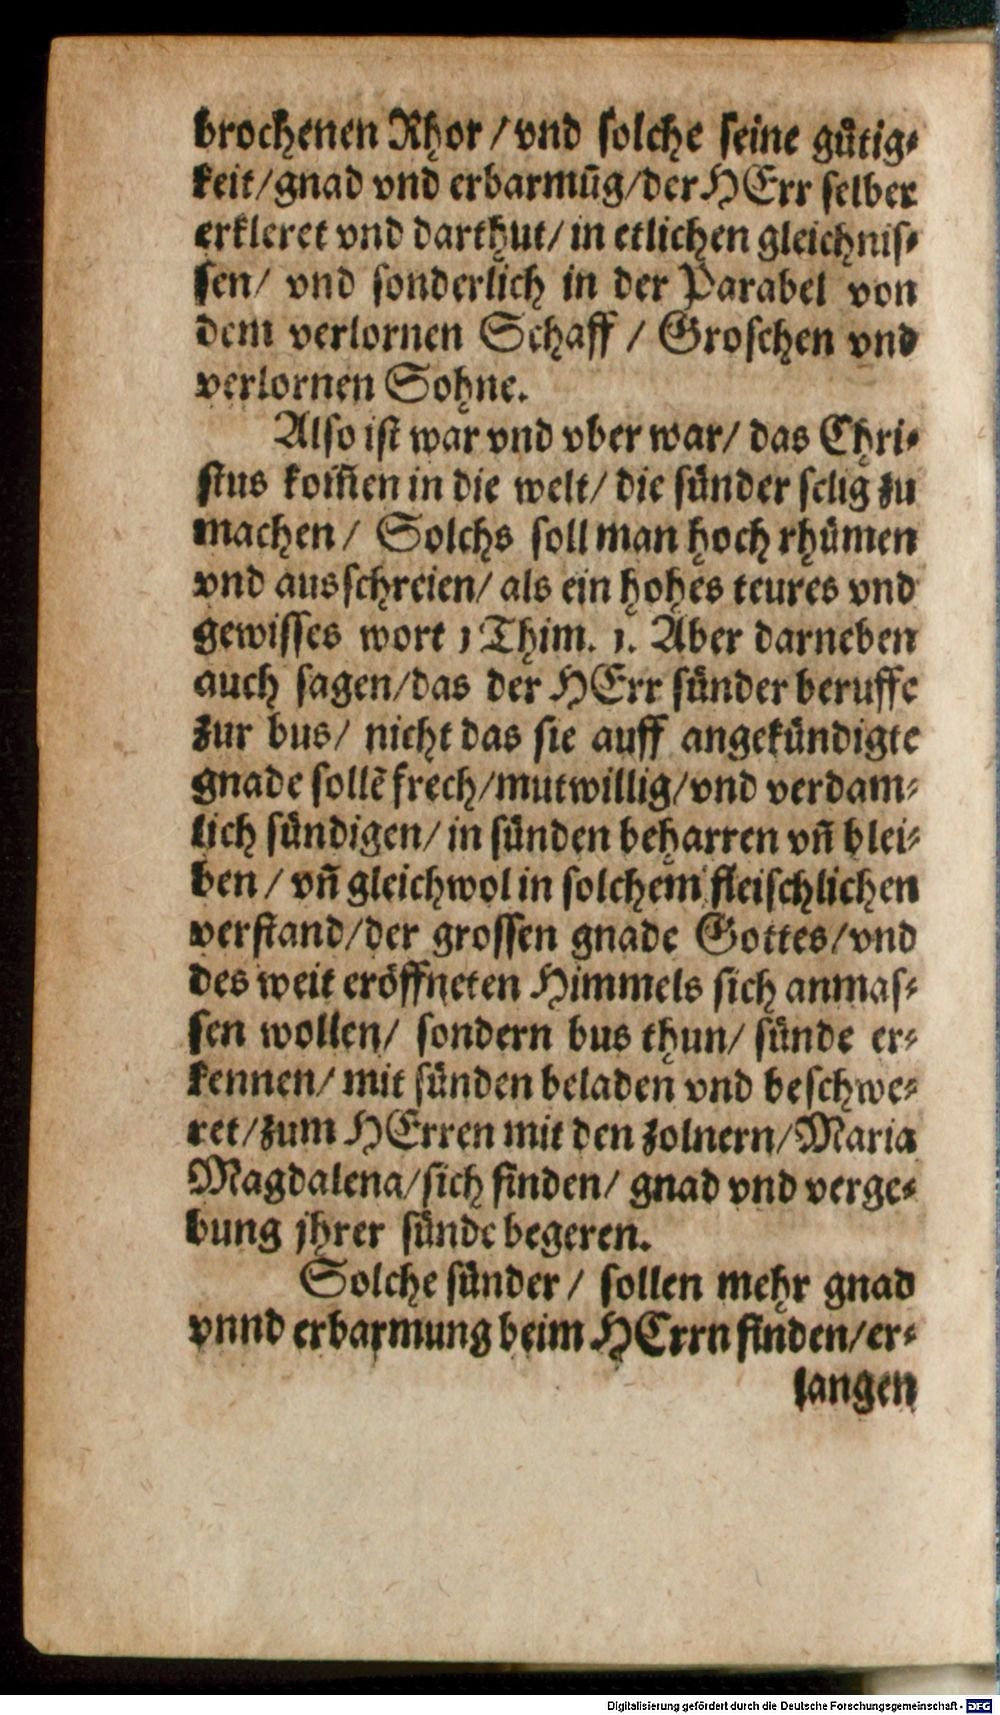 brochenen Rhor / vnd solche seine gůtig⸗
keit/gnad vnd erbarmūg/der HErr selber
erkleret vnd darthut/ in etlichen gleichnis⸗
sen/ vnd sonderlich in der Parabel von
dem verlornen Schaff / Groschen vnd
verlornen Sohne.
Also ist war vnd vber war/ das Chri⸗
stus kom̄en in die welt/ die sünder selig zu
machen/ Solchs soll man hoch rhümen
vnd ausschreien/ als ein hohes teures vnd
gewisses wort 1 Thim. 1. Aber darneben
auch sagen/das der HErr sünder beruffe
zur bus/ nicht das sie auff angekündigte
gnade sollē frech/mutwillig/vnd verdam⸗
lich sündigen/ in sünden beharren vn̄ blei⸗
ben / vn̄ gleichwol in solchem fleischlichen
verstand/der grossen gnade Gottes/vnd
des weit eröffneten Himmels sich anmas⸗
sen wollen/ sondern bus thun/ sünde er⸗
kennen/ mit sünden beladen vnd beschwe⸗
ret/zum HErren mit den zolnern/Maria
Magdalena/sich finden/ gnad vnd verge⸗
bung jhrer sünde begeren.
Solche sünder / sollen mehr gnad
vnnd erbarmung beim HErrn finden/er⸗
langen
Digitalisierung gefördert durch die Deutsche Forschungsgemeinschaft - DFG